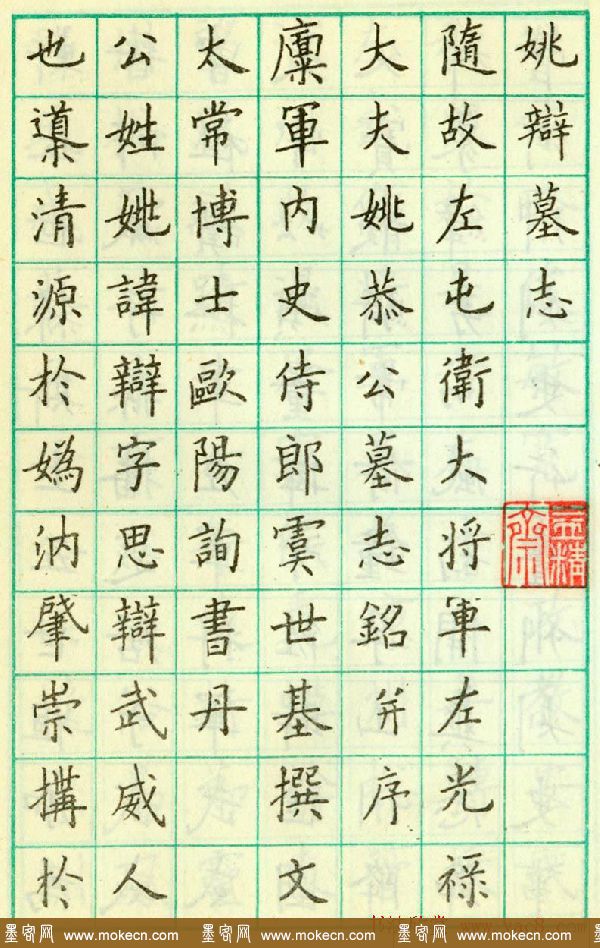 姚辯墓志
隨故左屯衛大将軍左光禄
大夫姚恭公墓志銘并序
廩軍内史侍郎虞世基撰文
太常博士歐陽詢書丹
公姓姚諱辯字思辯武威人
也導清源於嬀汭肇崇構於
墨客网 www.mokecn.com 墨客网 www.mokecn.com 墨客网 www.mokecn.com 墨客网 www.mokecn.com